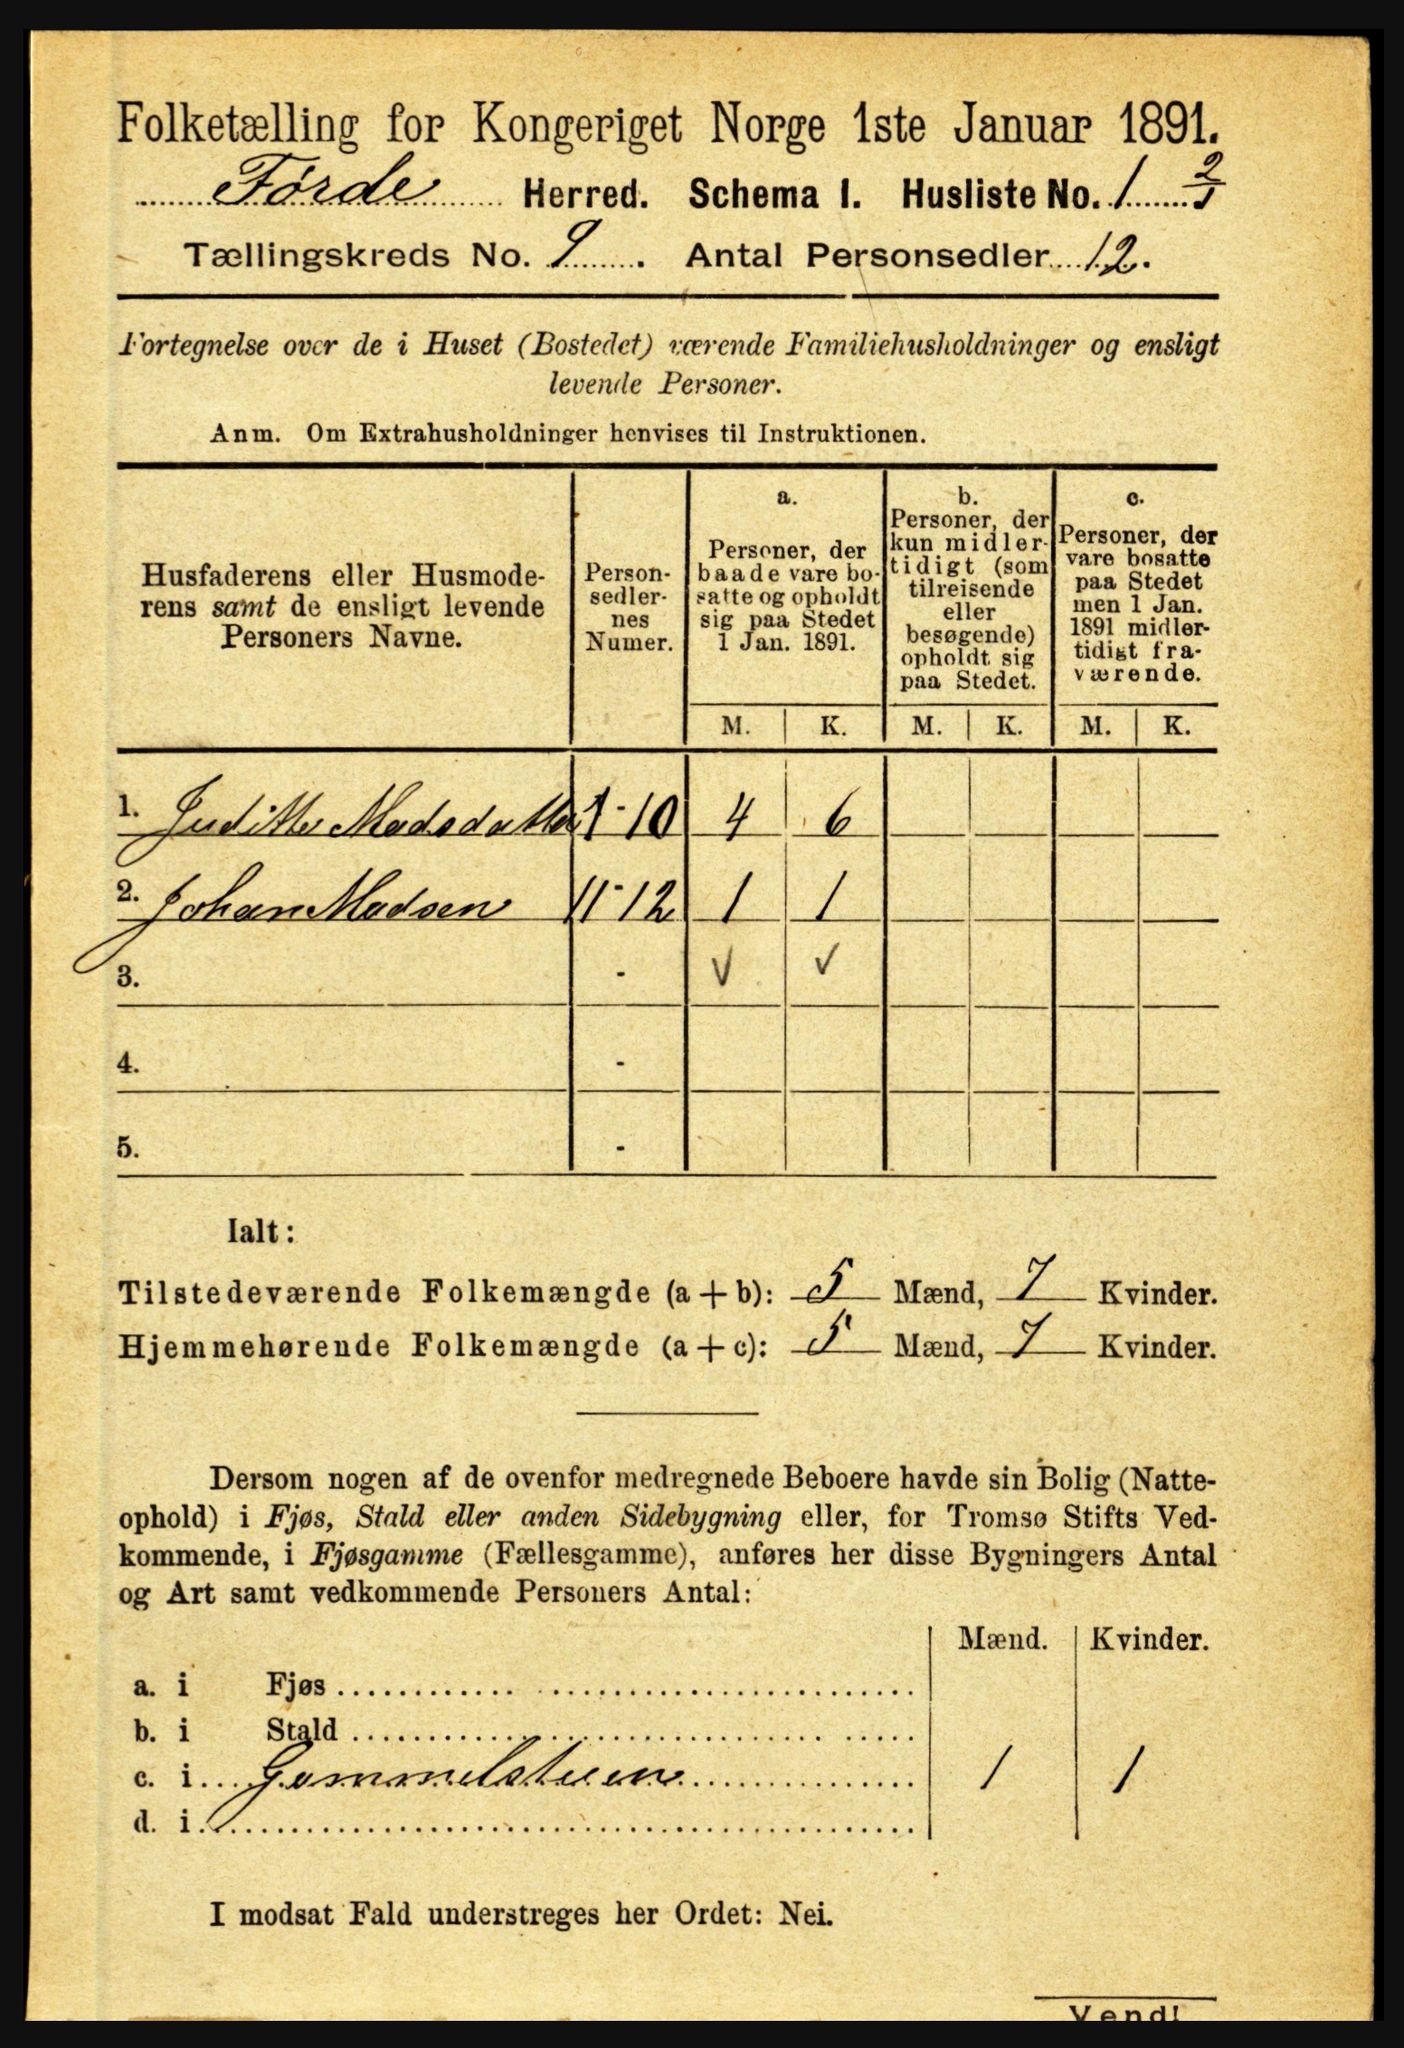 Folketælling for Kongeriget Norge 1ste Januar 1891.
Førde Herred. Schema I. Husliste No. 1 2/1
Tællingskreds No. 9. Antal Personsedler 12.
Fortegnelse over de i Huset (Bostedet) værende Familiehusholdninger og ensligt
levende Personer.
Anm. Om Extrahusholdninger henvises til Instruktionen.
Husfaderens eller Husmode-
rens samt de ensligt levende
Personers Navne.
Person-
sedler-
nes
Numer.
a.
Personer, der
baade vare bo-
satte og opholdt
sig paa Stedet
1 Jan. 1891.
b.
Personer, der
kun midler-
tidigt (som
tilreisende
eller
besøgende)
opholdt sig
paa Stedet.
c.
Personer, der
vare bosatte
paa Stedet
men 1 Jan.
1891 midler-
tidigt fra-
værende.
M. K. M. K. M. K.
1. Juditte Madsdatter 1-10 4 6
2. Johan Madsen 11-12 1 1
3. - √ √
4. -
5. -
Ialt:
Tilstedeværende Folkemængde (a+b): 5 Mænd, 7 Kvinder.
Hjemmehørende Folkemængde (a+c): 5 Mænd, 7 Kvinder.
Dersom nogen af de ovenfor medregnede Beboere havde sin Bolig (Natte-
ophold) i Fjøs, Stald eller anden Sidebygning eller, for Tromsø Stifts Ved-
kommende, i Fjøsgamme (Fællesgamme), anføres her disse Bygningers Antal
og Art samt vedkommende Personers Antal:
Mænd. Kvinder.
a. i Fjøs
b. i Stald
c. i Gammelstuen 1 1
d. i
I modsat Fald understreges her Ordet: Nei.
Vend!